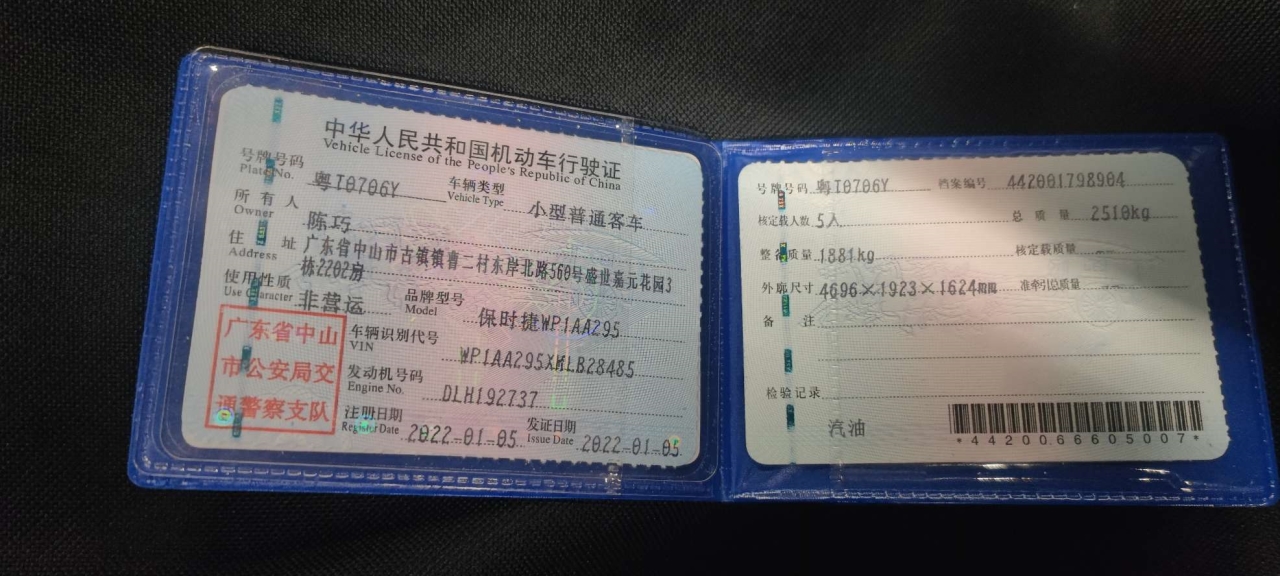 中华人民共和国机动车行驶证
Vehicle License of the People's Republic of China
号牌号码 粤T0706Y 车辆类型 小型普通客车
Plate No. Vehicle Type
所有人 陈巧
Owner
住址 广东省中山市古镇镇曹二村东岸北路560号盛世嘉元花园3
Address 栋2202房
使用性质 非营运 品牌型号 保时捷WP1AA295
Use Character Model
车辆识别代号 WP1AA295XMLB28485
VIN
发动机号码 DLH192737
Engine No.
注册日期 2022-01-05 发证日期 2022-01-05
Register Date Issue Date
广东省中山
市公安局交
通警察支队
号牌号码 粤T0706Y 档案编号 442001798904
核定载人数 5人 总质量 2510kg
整备质量 1881kg 核定载质量
外廓尺寸 4696×1923×1624mm 准牵引总质量
备注
检验记录
汽油
*4420066605007*